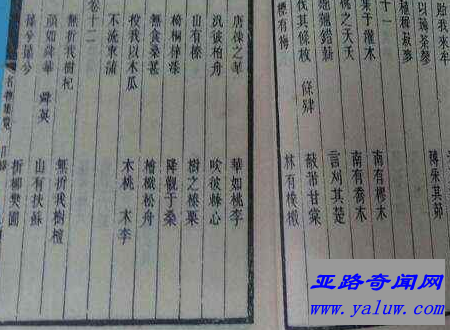 我來牟
以薅荼蓼
薄采其茆
十一
集于灌木 南有樛木
桃之夭夭 南有喬木
翹翹錯薪 言刈其楚
伐其條枚 條肄 蔽芾甘棠
摽有梅 林有樸樕
唐棣之華 華如桃李
汎彼柏舟 吹彼棘心
山有榛 樹之榛栗
椅桐梓漆 降觀于桑
無食桑葚 檜楫松舟
投我以木瓜 木桃 木李
不流束蒲
卷十二
無折我樹杞 無折我樹檀
顏如舜華 舜英 山有扶蘇
蘀兮蘀兮 折柳樊圃
亚路奇闻网
www.yaluw.com